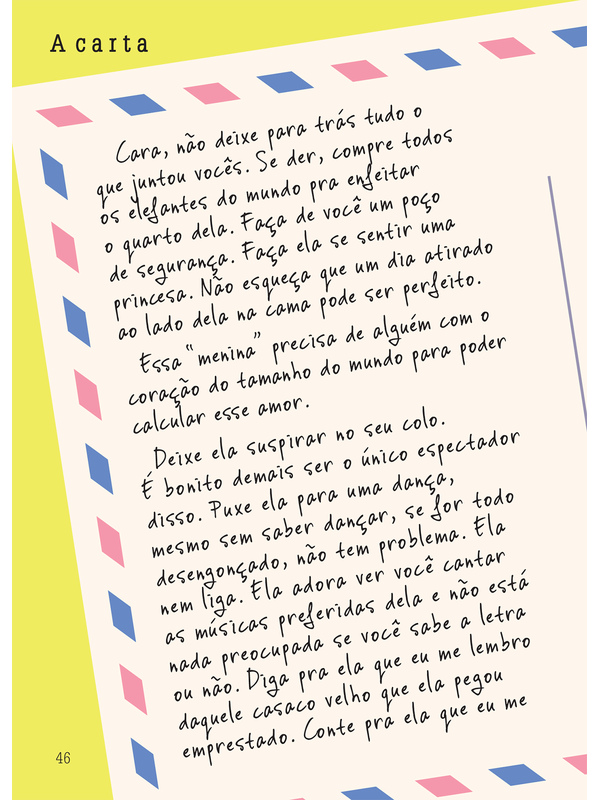 A carta
Cara, não deixe para trás tudo o
que juntou vocês. Se der, compre todos
os elefantes do mundo pra enfeitar
o quarto dela. Faça de você um poço
de segurança. Faça ela se sentir uma
princesa. Não esqueça que um dia atirado
ao lado dela na cama pode ser perfeito.
Essa “menina” precisa de alguém com o
coração do tamanho do mundo para poder
calcular esse amor.
Deixe ela suspirar no seu colo.
É bonito demais ser o único espectador
disso. Puxe ela para uma dança,
mesmo sem saber dançar, se for todo
desengonçado, não tem problema. Ela
nem liga. Ela adora ver você cantar
as músicas preferidas dela e não está
nada preocupada se você sabe a letra
ou não. Diga pra ela que eu me lembro
daquele casaco velho que ela pegou
emprestado. Conte pra ela que eu me
46